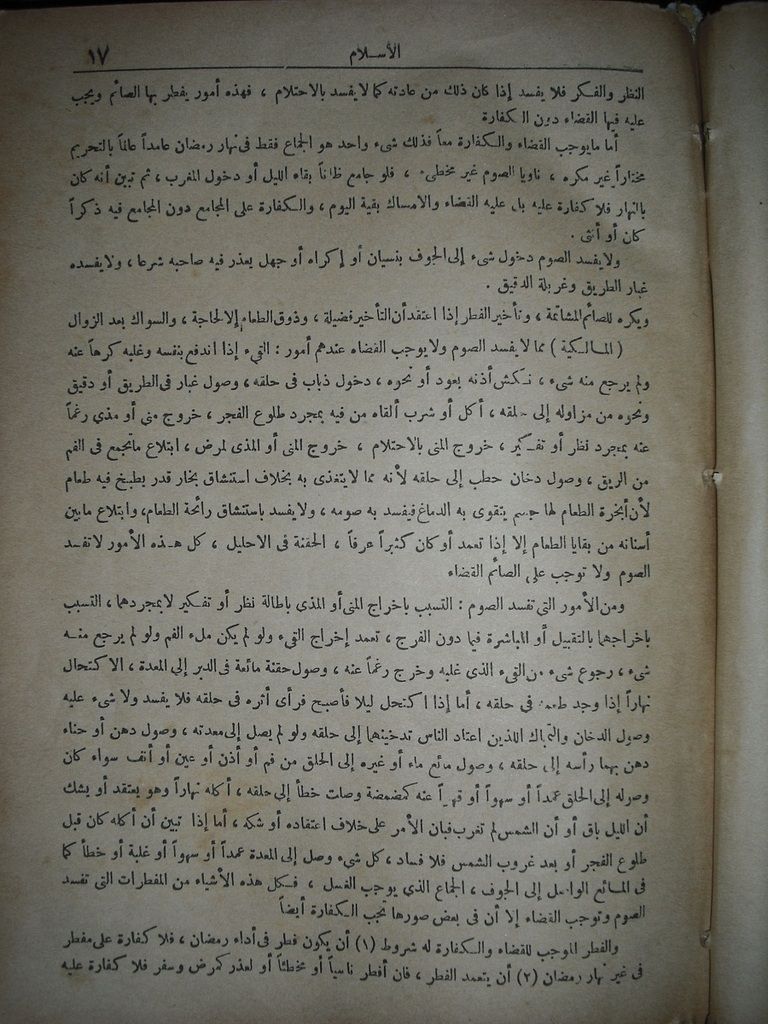 ١٧
الأسلام
النظر والفكر فلا يفسد إذا كان ذلك من عادته كما لا يفسد بالاحتلام ، فهذه أمور يفطر بها الصائم ويجب
عليه فيها القضاء دون الكفارة
أما ما يوجب القضاء والكفارة معاً فذلك شىء واحد هو الجماع فقط فى نهار رمضان عامداً عالماً بالتحريم
مختاراً غير مكره ، ناويا الصوم غير مخطىء ، فلو جامع ظاناً بقاء الليل أو دخول المغرب ، ثم تبين أنه كان
بالنهار فلا كفارة عليه بل عليه القضاء والامساك بقية اليوم ، والكفارة على المجامع دون المجامع فيه ذكراً
كان أو أنثى .
ولا يفسد الصوم دخول شىء إلى الجوف بنسيان أو إكراه أو جهل يعذر فيه صاحبه شرعا ، ولا يفسده
غبار الطريق وغربلة الدقيق .
ويكره للصائم المشاتمة ، وتأخير الفطر إذا اعتقد أن التأخير فضيلة ، وذوق الطعام إلا لحاجة ، والسواك بعد الزوال
( المالكية ) مما لا يفسد الصوم ولا يوجب القضاء عندهم أمور : القيء إذا اندفع بنفسه وغلبه كرهاً عنه
ولم يرجع منه شىء ، نكش أذنه بعود أو نحوه ، دخول ذباب فى حلقه ، وصول غبار فى الطريق أو دقيق
ونحوه من مزاوله إلى حلقه ، أكل أو شرب ألقاه من فيه بمجرد طلوع الفجر ، خروج منى أو مذي رغماً
عنه بمجرد نظر أو تفكير ، خروج المنى بالاحتلام ، خروج المنى أو المذى لمرض ، ابتلاع ما تجمع فى الفم
من الريق ، وصول دخان حطب إلى حلقه لأنه مما لا يتغذى به بخلاف استنشاق بخار قدر يطبخ فيه طعام
لأن أبخرة الطعام لها جسم يتقوى به الدماغ فيفسد به صومه ، ولا يفسد باستنشاق رائحة الطعام ، وابتلاع ما بين
أسنانه من بقايا الطعام إلا إذا تعمد أو كان كثيراً عرفاً ، الحقنة فى الاحليل ، كل هذه الأمور لا تفسد
الصوم ولا توجب على الصائم القضاء
ومن الأمور التى تفسد الصوم : التسبب باخراج المنى أو المذى باطالة نظر أو تفكير لا بمجردهما ، التسبب
باخراجهما بالتقبيل أو المباشرة فيما دون الفرج ، تعمد إخراج القىء ولو لم يكن ملء الفم ولو لم يرجع منه
شىء ، رجوع شىء من القىء الذى غلبه وخرج رغماً عنه ، وصول حقنة مائعة فى الدبر إلى المعدة ، الاكتحال
نهاراً إذا وجد طعمه فى حلقه ، أما إذا اكتحل ليلا فأصبح فرأى أثره فى حلقه فلا يفسد ولا شىء عليه
وصول الدخان والتمباك اللذين اعتاد الناس تدخينهما إلى حلقه ولو لم يصل إلى معدته ، وصول دهن أو حناء
دهن بهما رأسه إلى حلقه ، وصول مائع ماء أو غيره إلى الحلق من فم أو أذن أو عين أو أنف سواء كان
وصوله إلى الحلق عمداً أو سهواً أو قهراً عنه كمضمضة وصلت خطأ إلى حلقه ، أكله نهاراً وهو يعتقد أو يشك
أن الليل باق أو أن الشمس لم تغرب فبان الأمر على خلاف اعتقاده أو شكه ، أما إذا تبين أن أكله كان قبل
طلوع الفجر أو بعد غروب الشمس فلا فساد ، كل شىء وصل إلى المعدة عمداً أو سهواً أو غلبة أو خطأ كما
فى المائع الواصل إلى الجوف ، الجماع الذي يوجب الغسل ، فكل هذه الأشياء من المفطرات التى تفسد
الصوم وتوجب القضاء إلا أن فى بعض صورها تجب الكفارة أيضاً
والفطر الموجب للقضاء والكفارة له شروط (١) أن يكون فطر فى أداء رمضان ، فلا كفارة على مفطر
فى غير نهار رمضان (٢) أن يتعمد الفطر ، فان أفطر ناسياً أو مخطئاً أو لعذر كمرض وسفر فلا كفارة عليه